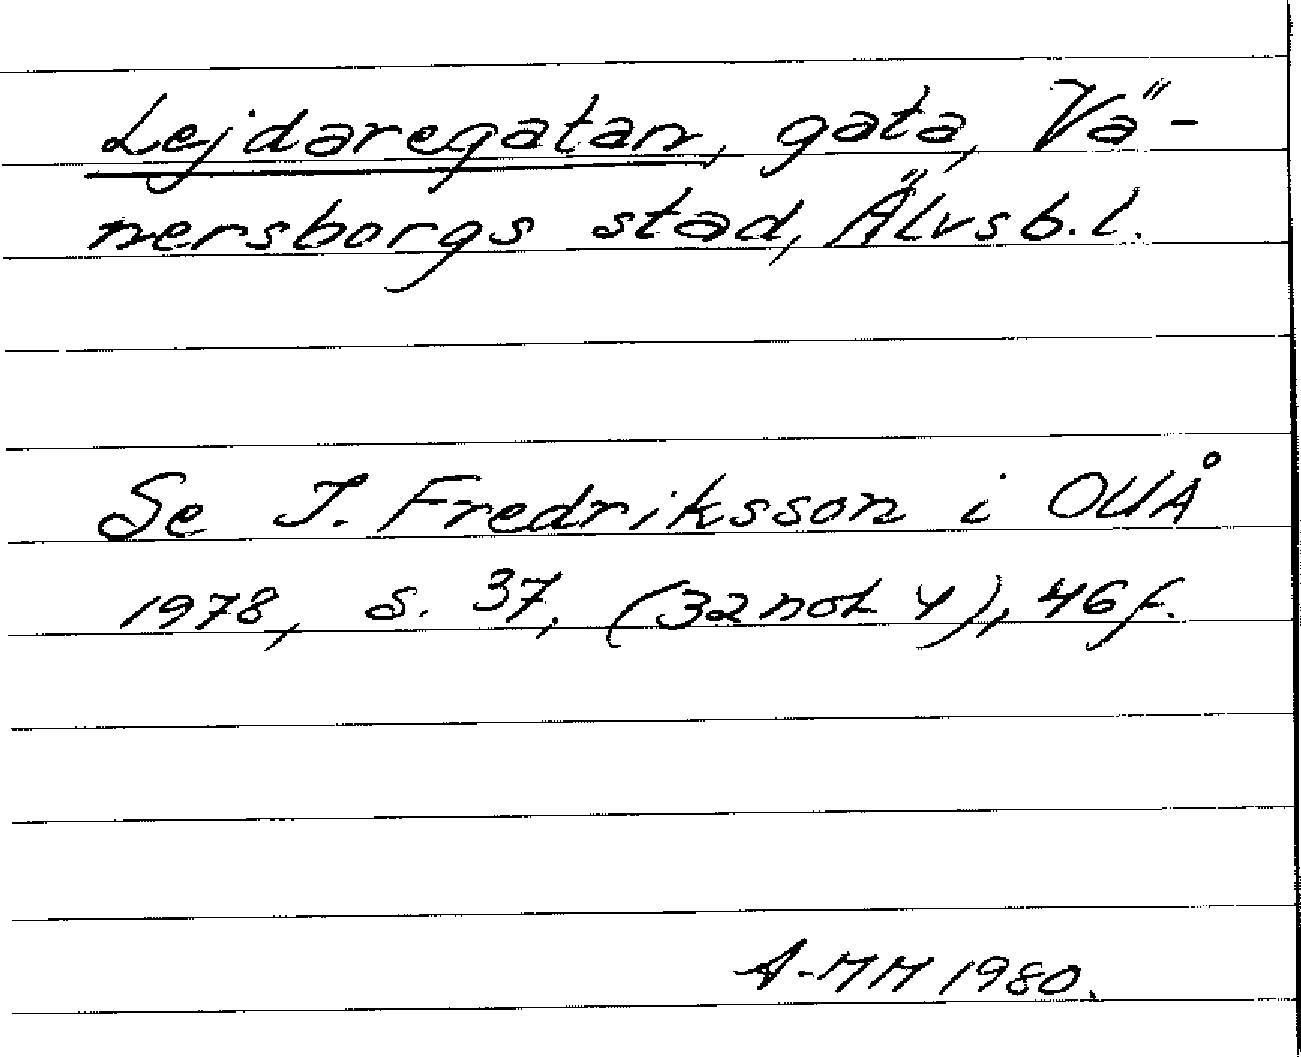 Lejdaregatan, gata, Vä-
nersborgs stad, Älvsb. l.
Se I. Fredriksson i OUÅ
1978, s. 37, (32 not 4), 46 f.
A-MM 1980.